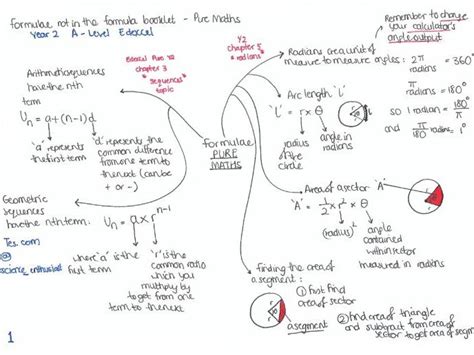 Formulae not in the formula booklet - Pure Maths
Year 2 A-Level Edexcel
Edexcel Pure Y2
chapter 3
"sequences"
topic
Y2
chapter 5
"radians"
Remember to change
your calculator's
angle output
Radians are a unit of
measure to measure angles:
2π radians = 360°
π radians = 180°
so 1 radian = 180°/π
and π radians/180° = 1°
Arithmetic sequences
have the nth
term
Un = a+(n-1)d
'a' represents
the first term
'd' represents the
common difference
from one term to
the next (can be
+ or -)
formulae
PURE
MATHS
Arc length 'L'
'L' = r x θ
radius
of the
circle
angle in
radians
Geometric
sequences
have the nth term:
Un = a x r^n-1
where 'a' is the
first term
'r' is the
common ratio
which you
multiply by
to get from one
term to the next
Tes.com
@
science_enthusiast
Area of a sector 'A'
'A' = 1/2 x r² x θ
(radius)²
angle
contained
within sector
measured in radians
finding the area of
a segment:
① first find
area of sector
② find area of triangle
and subtract from area of
sector to get area of segm
a segment
1